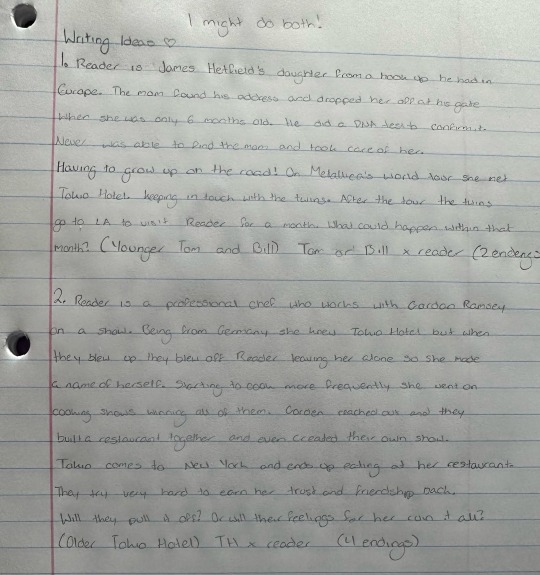 I might do both!
Writing Ideas ♡
1. Reader is James Hetfield's daughter from a hook up he had in
Europe. The mom found his address and dropped her off at his gate
when she was only 6 months old. He did a DNA test to confirm it.
Never was able to find the mom and took care of her.
Having to grow up on the road! On Metallica's world tour she met
Tokio Hotel. keeping in touch with the twins. After the tour the twins
go to LA to visit Reader for a month. What could happen within that
month? (Younger Tom and Bill) Tom or Bill x reader (2 endings
2. Reader is a professional chef who works with Gordon Ramsey
on a show. Being from Germany she knew Tokio Hotel but when
they blew up they blew off Reader leaving her alone so she made
a name of herself. Starting to cook more frequently she went on
cooking shows winning all of them. Gorden reached out and they
built a restaurant together and even created their own show.
Tokio comes to New York and ends up eating at her restaurant.
They try very hard to earn her trust and friendship back.
Will they pull it off? Or will their feelings for her ruin it all?
(Older Tokio Hotel) TH x reader (4 endings)